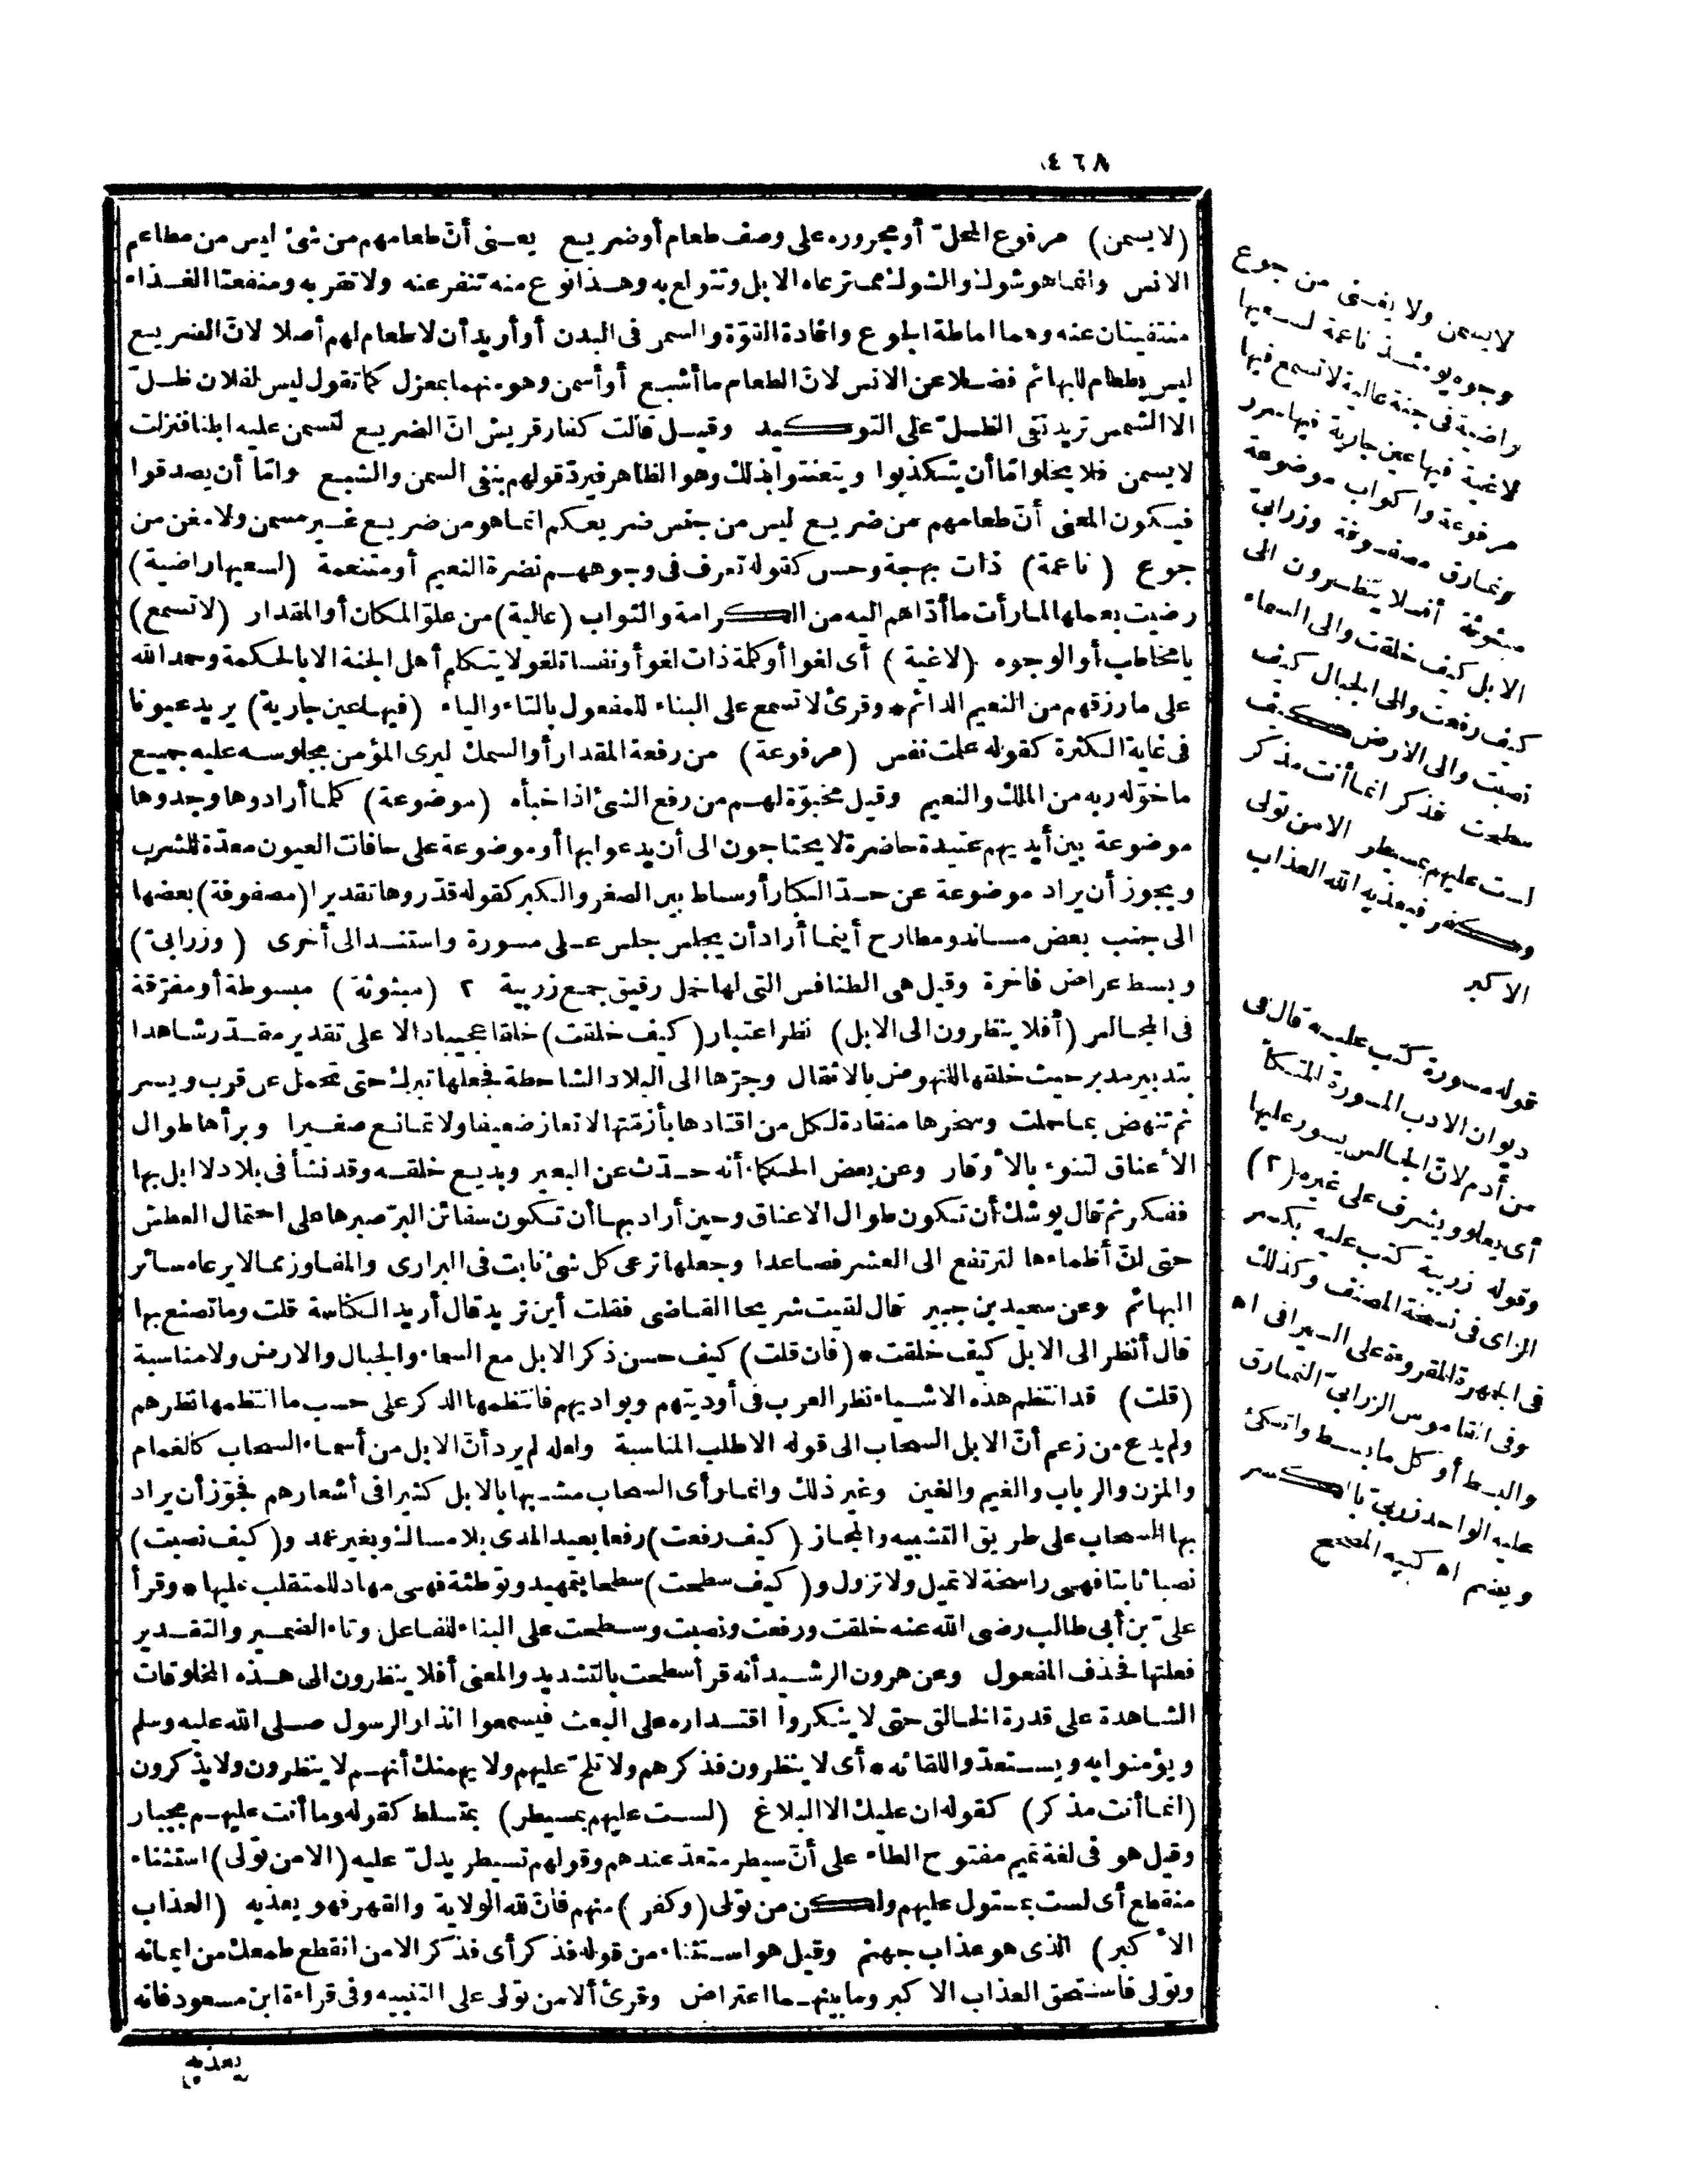 ٤٦٨
(لا يسمن) مرفوع المحلّ أو مجروره على وصف طعام أو ضريع يعنى أنّ طعامهم من شئ ليس من مطاعم
الانس وانما هو شوك والشوك مما ترعاه الابل وتتولع به وهذا نوع منه تنفر عنه ولا تقربه ومنفعتا الغذاء
منتفيتان عنه وهما اماطة الجوع وافادة القوّة والسمن فى البدن أو أريد أن لا طعام لهم أصلا لانّ الضريع
ليس بطعام للبهائم فضلا عن الانس لانّ الطعام ما أشبع أو أسمن وهو منهما بمعزل كما تقول ليس لفلان ظلّ
الا الشمس تريد نفى الظلّ على التوكيد وقيل قالت كفار قريش انّ الضريع لتسمن عليه ابلنا فنزلت
لا يسمن فلا يخلو امّا أن يتكذبوا ويتعنتوا بذلك وهو الظاهر فيردّ قولهم بنفى السمن والشبع وامّا أن يصدقوا
فيكون المعنى أنّ طعامهم من ضريع ليس من جنس ضريعكم انما هو من ضريع غير مسمن ولا مغن من
جوع (ناعمة) ذات بهجة وحسن كقوله تعرف فى وجوههم نضرة النعيم أو متنعمة (لسعيها راضية)
رضيت بعملها لما رأت ما أدّاهم اليه من الكرامة والثواب (عالية) من علوّ المكان أو المقدار (لا تسمع)
يا مخاطب أو الوجوه (لاغية) أى لغوا أو كلمة ذات لغو أو نفسا تلغو لا يتكلم أهل الجنة الا بالحكمة وحمد الله
على ما رزقهم من النعيم الدائم * وقرئ لا تسمع على البناء للمفعول بالتاء والياء (فيها عين جارية) يريد عيونا
فى غاية الكثرة كقوله علمت نفس (مرفوعة) من رفعة المقدار أو السمك ليرى المؤمن بجلوسه عليه جميع
ما خوّله ربه من الملك والنعيم وقيل مخبوّة لهم من رفع الشئ اذا خبأه (موضوعة) كلما أرادوها وجدوها
موضوعة بين أيديهم عتيدة حاضرة لا يحتاجون الى أن يدعوا بها أو موضوعة على حافات العيون معدّة للشرب
ويجوز أن يراد موضوعة عن حدّ الكبار أوساط بين الصغر والكبر كقوله قدّروها تقديرا (مصفوفة) بعضها
الى جنب بعض مساند ومطارح أينما أراد أن يجلس جلس على مسورة واستند الى أخرى (وزرابىّ)
وبسط عراض فاخرة وقيل هى الطنافس التى لها خمل رقيق جمع زربية ٢ (مبثوثة) مبسوطة أو مفرّقة
فى المجالس (أفلا ينظرون الى الابل) نظر اعتبار (كيف خلقت) خلقا عجيبا دالا على تقدير مقدّر شاهدا
بتدبير مدبر حيث خلقها للنهوض بالاثقال وجرّها الى البلاد الشاحطة فجعلها تبرك حتى تحمل عن قرب ويسر
ثم تنهض بما حملت وسخرها منقادة لكل من اقتادها بأزمّتها لا تعاز ضعيفا ولا تمانع صغيرا وبرأها طوال
الأعناق لتنوء بالأوقار وعن بعض الحكماء أنه حدّث عن البعير وبديع خلقه وقد نشأ فى بلاد لا ابل بها
ففكر ثم قال يوشك أن تكون طوال الاعناق وحين أراد بها أن تكون سفائن البرّ صبرها على احتمال العطش
حتى انّ أظماءها لترتفع الى العشر فصاعدا وجعلها ترعى كل شئ نابت فى البرارى والمفاوز مما لا يرعاه سائر
البهائم وعن سعيد بن جبير قال لقيت شريحا القاضى فقلت أين تريد قال أريد الكناسة قلت وما تصنع بها
قال أنظر الى الابل كيف خلقت * (فان قلت) كيف حسن ذكر الابل مع السماء والجبال والارض ولا مناسبة
(قلت) قد انتظم هذه الاشياء نظر العرب فى أوديتهم وبواديهم فانتظمها الذكر على حسب ما انتظمها نظرهم
ولم يدع من زعم أنّ الابل السحاب الى قوله الا طلب المناسبة ولعله لم يرد أنّ الابل من أسماء السحاب كالغمام
والمزن والرباب والغيم والغين وغير ذلك وانما رأى السحاب مشبها بالابل كثيرا فى أشعارهم فجوّز أن يراد
بها السحاب على طريق التشبيه والمجاز (كيف رفعت) رفعا بعيد المدى بلا مساك وبغير عمد و(كيف نصبت)
نصبا ثابتا فهى راسخة لا تميل ولا تزول و(كيف سطحت) سطحا بتمهيد وتوطئة فهى مهاد للمتقلب عليها * وقرأ
علىّ بن أبى طالب رضى الله عنه خلقت ورفعت ونصبت وسطحت على البناء للفاعل وتاء الضمير والتقدير
فعلتها فحذف المفعول وعن هرون الرشيد أنه قرأ سطحت بالتشديد والمعنى أفلا ينظرون الى هذه المخلوقات
الشاهدة على قدرة الخالق حتى لا ينكروا اقتداره على البعث فيسمعوا انذار الرسول صلى الله عليه وسلم
ويؤمنوا به ويستعدّوا للقائه * أى لا ينظرون فذكرهم ولا تلحّ عليهم ولا يهمنك أنهم لا ينظرون ولا يذكرون
(انما أنت مذكر) كقوله ان عليك الا البلاغ (لست عليهم بمسيطر) بمتسلط كقوله وما أنت عليهم بجبار
وقيل هو فى لغة تميم مفتوح الطاء على أنّ سيطر متعدّ عندهم وقولهم تسيطر يدلّ عليه (الا من تولى) استثناء
منقطع أى لست بمستول عليهم ولكن من تولى (وكفر) منهم فانّ لله الولاية والقهر فهو يعذبه (العذاب
الأكبر) الذى هو عذاب جهنم وقيل هو استثناء من قوله فذكر أى فذكر الا من انقطع طمعك من ايمانه
وتولى فاستحق العذاب الاكبر وما بينهما اعتراض وقرئ ألا من تولى على التنبيه وفى قراءة ابن مسعود فانه
يعذبه
لا يسمن ولا يغنى من جوع
وجوه يومئذ ناعمة لسعيها
راضية فى جنة عالية لا تسمع فيها
لاغية فيها عين جارية فيها سرر
مرفوعة وأكواب موضوعة
ونمارق مصفوفة وزرابىّ
مبثوثة أفلا ينظرون الى
الابل كيف خلقت والى السماء
كيف رفعت والى الجبال كيف
نصبت والى الارض كيف
سطحت فذكر انما أنت مذكر
لست عليهم بمسيطر الا من تولى
وكفر فيعذبه الله العذاب
الاكبر
قوله مسورة كتب عليه قال فى
ديوان الادب المسورة المتكأ
من أدم لانّ الجالس يسور عليها
أى يعلو ويشرف على غيره (٢)
وقوله زربية كتب عليه بكسر
الزاى فى نسخة المصنف وكذلك
فى الجمهرة المقروءة على السيرافى اه
وفى القاموس الزرابىّ النمارق
والبسط أو كل ما بسط واتكئ
عليه الواحد زربىّ بالكسر
ويضم اه كتبه المصحح